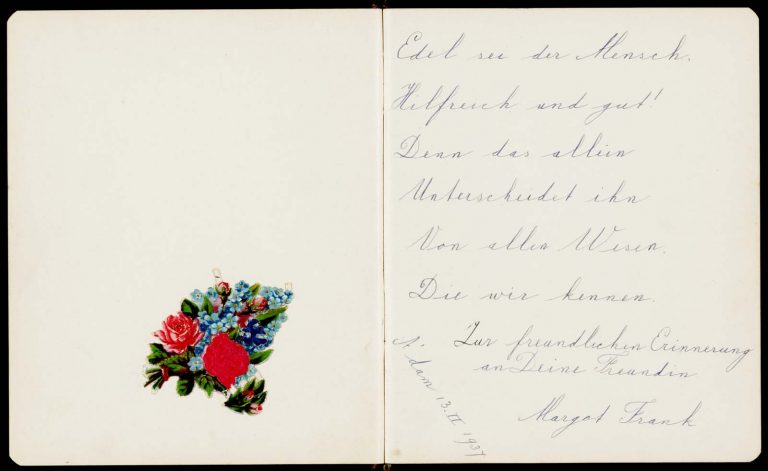 Edel sei der Mensch,
Hilfreich und gut!
Denn das allein
Unterscheidet ihn
Von allen Wesen,
Die wir kennen.
Zur freundlichen Erinnerung
an Deine Freundin
Margot Frank
A.'dam 13.II 1937